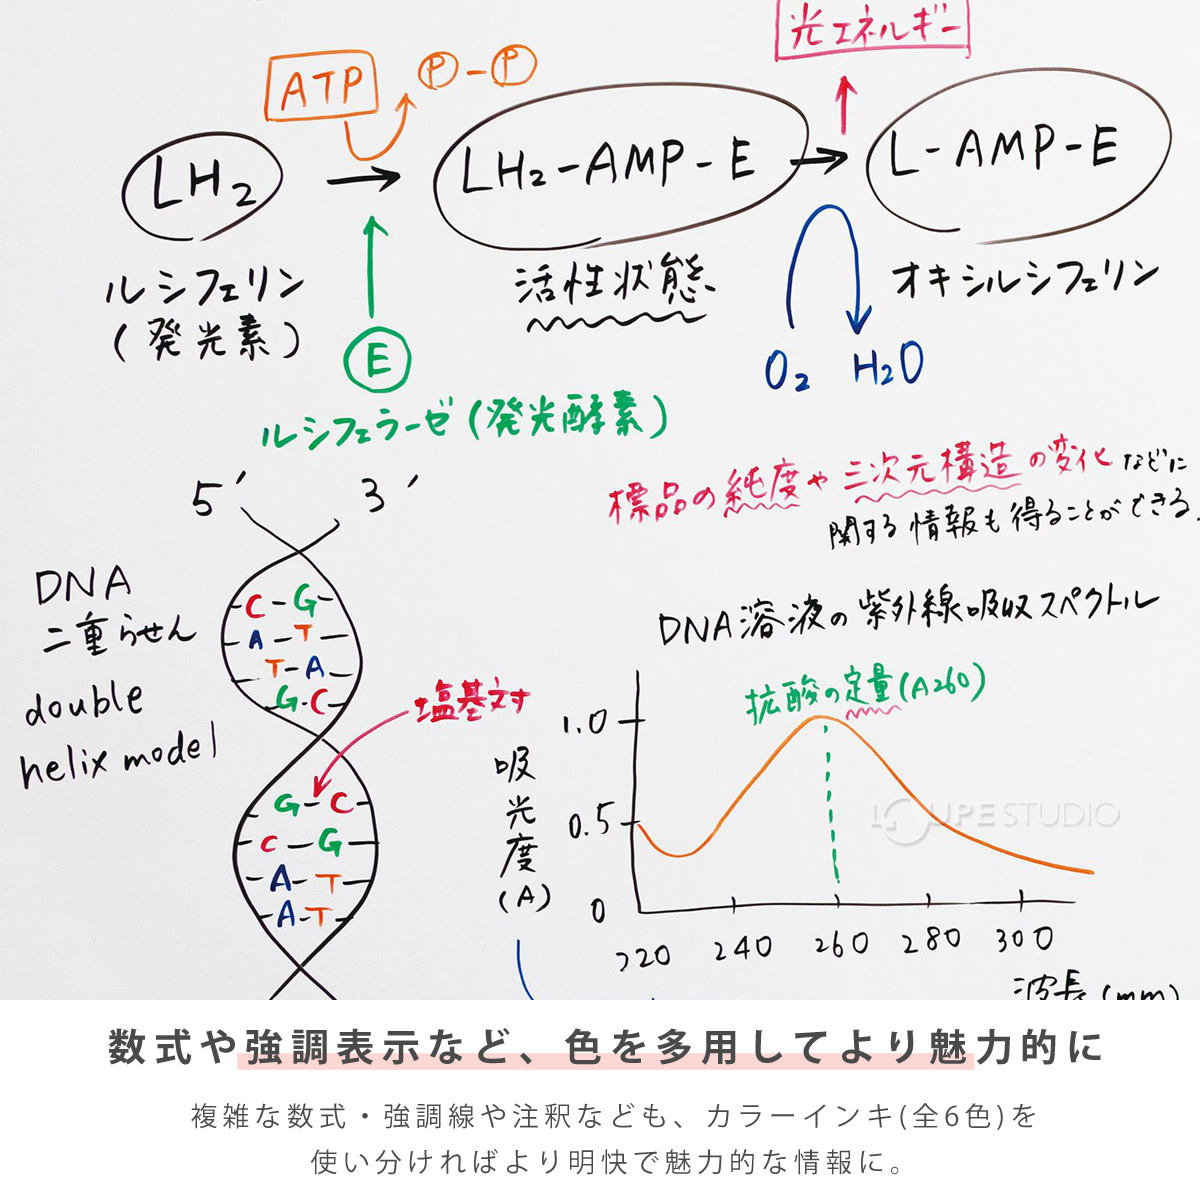 光エネルギー
ATP
P-P
LH₂
LH₂-AMP-E
L-AMP-E
ルシフェリン
(発光素)
活性状態
オキシルシフェリン
E
O₂ H₂O
ルシフェラーゼ(発光酵素)
5′ 3′
標品の純度や三次元構造の変化などに
関する情報も得ることができる.
DNA
二重らせん
double
helix model
C-G
A-T
T-A
G-C
塩基対
G-C
C-G
A-T
A-T
DNA溶液の紫外線吸収スペクトル
抗酸の定量(A260)
吸光度(A)
1.0
0.5
0
220 240 260 280 300
波長(mm)
LOUPE STUDIO
数式や強調表示など、色を多用してより魅力的に
複雑な数式・強調線や注釈なども、カラーインキ(全6色)を
使い分ければより明快で魅力的な情報に。